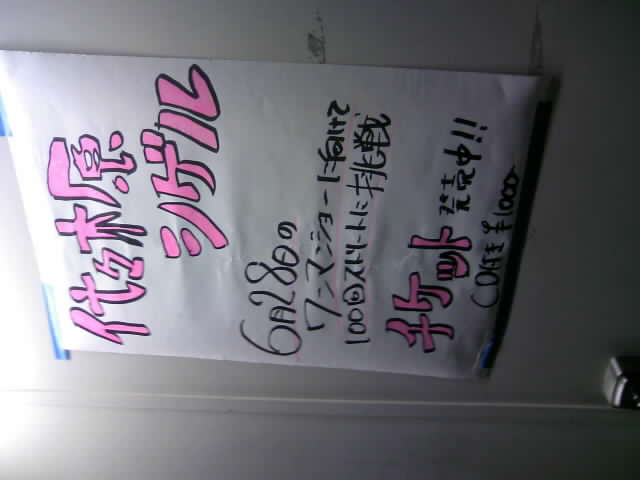 代々木原
シゲル
6月28日の
ワンマンショーに向けて
100回ストリートに挑戦
チケット 発売中!!
CD付き ¥1000